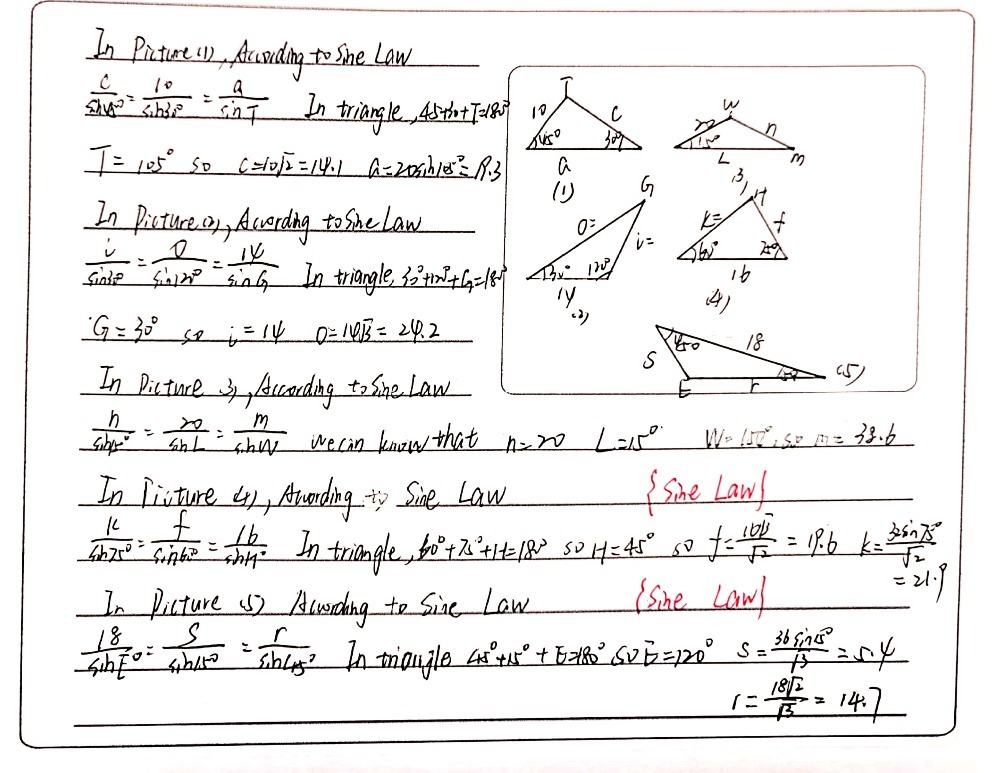 In Picture (1), According to Sine Law
c/sin45° = 10/sin30° = a/sin T In triangle, 45+30+T=180°
T = 105° so c=10√2=14.1 a=20sin105°=19.3
In Picture (2), According to Sine Law
i/sin30° = O/sin120° = 14/sin G In triangle, 30°+120°+G=180°
G = 30° so i = 14 O=14√3=24.2
In Picture (3), According to Sine Law
n/sin15° = 20/sin L = m/sin W we can know that n=20 L=15° W=150°, so m=38.6
In Picture (4), According to Sine Law {Sine Law}
k/sin75° = f/sin60° = 16/sin H° In triangle, 60°+75°+H=180° so H=45° so f=16√3/√2=19.6 k=32sin75°/√2
=21.9
In Picture (5) According to Sine Law {Sine Law}
18/sin E° = S/sin15° = r/sin45° In triangle 45°+15°+E=180° so E=120° S=36sin15°/√3=5.4
r=18√2/√3=14.7
T
10 c
45° 30°
a
(1)
W
20 n
15°
L m
(3)
G
O= i=
30° 120°
14
(2)
H
k= f
60° 75°
16
(4)
45° 18
S 15° (5)
E r